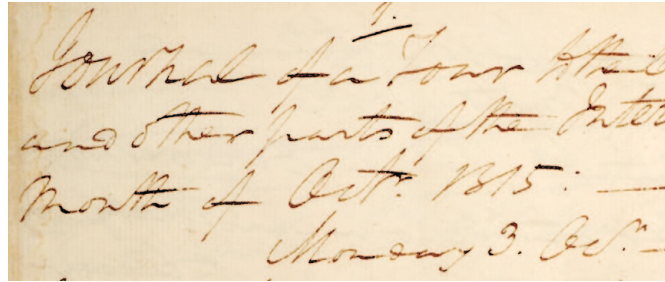 1.
Journal of a Tour to the
and other parts of the Inter
Month of Octr. 1815: —
Monday 3. Octr. —